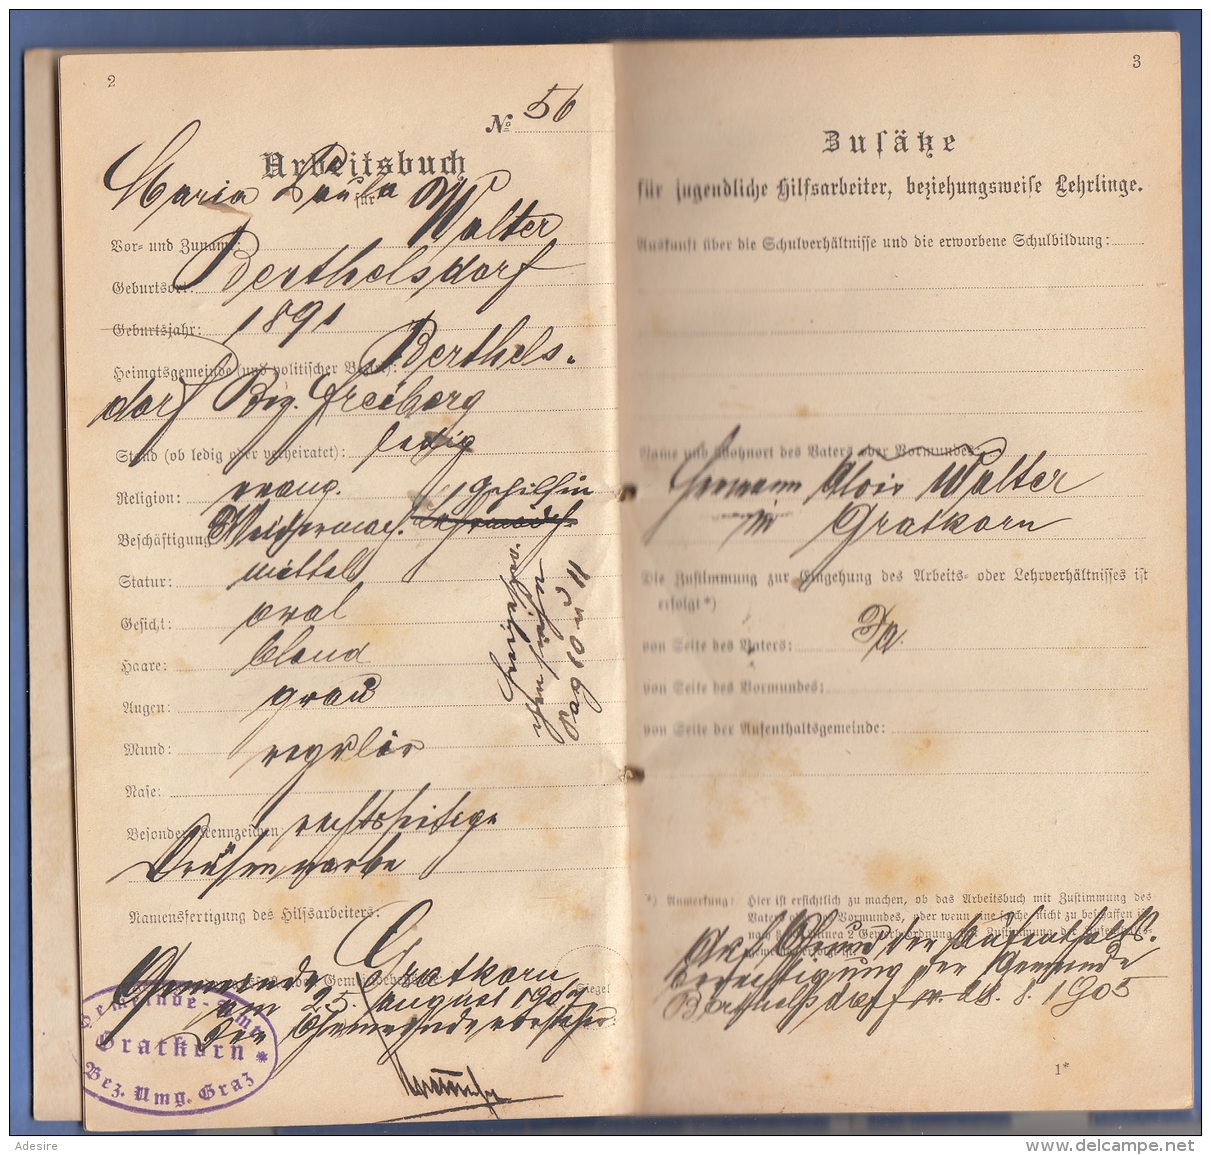 2
№ 56
Arbeitsbuch
für
Maria Paula Walter
Vor- und Zuname:
Geburtsort: Berthelsdorf
Geburtsjahr: 1891
Heimatsgemeinde (und politischer Bezirk): Berthels-
dorf Bez. Freiberg
Stand (ob ledig oder verheiratet): ledig
Religion: evang. Gehilfin
Beschäftigung:
Statur: mittel
Gesicht: oval
Haare: blond
Augen: grau
Mund: regulär
Nase:
Besondere Kennzeichen: rechtsseitige
Drüsennarbe
Namensfertigung des Hilfsarbeiters:
Gemeinde Gratkorn
Siegel
am 25. August 1905
Der Gemeindevorsteher:
Gemeinde-Amt
Gratkorn *
Bez. Umg. Graz
3
Zusätze
für jugendliche Hilfsarbeiter, beziehungsweise Lehrlinge.
Auskunft über die Schulverhältnisse und die erworbene Schulbildung:
Name und Wohnort des Vaters oder Vormundes:
Hermann Alois Walter
in Gratkorn
Die Zustimmung zur Eingehung des Arbeits- oder Lehrverhältnisses ist
erfolgt*)
von Seite des Vaters: Ja.
von Seite des Vormundes:
von Seite der Aufenthaltsgemeinde:
*) Anmerkung: Hier ist ersichtlich zu machen, ob das Arbeitsbuch mit Zustimmung des
Vaters oder Vormundes, oder wenn eine solche nicht zu beschaffen ist
Auf Grund der Aufenthalts-
berechtigung der Gemeinde
Berthelsdorf v. 28. 8. 1905
1*
Adesire
www.delcampe.net